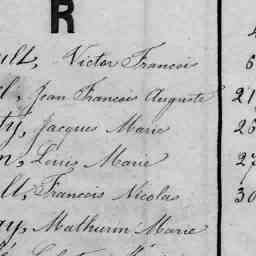 R
ult, Victor Francois
l, Jean Francois Auguste 21
ty, Jacques Marie 26
n, Louis Marie 27
lt, Francois Nicolas 30
ay, Mathurin Marie